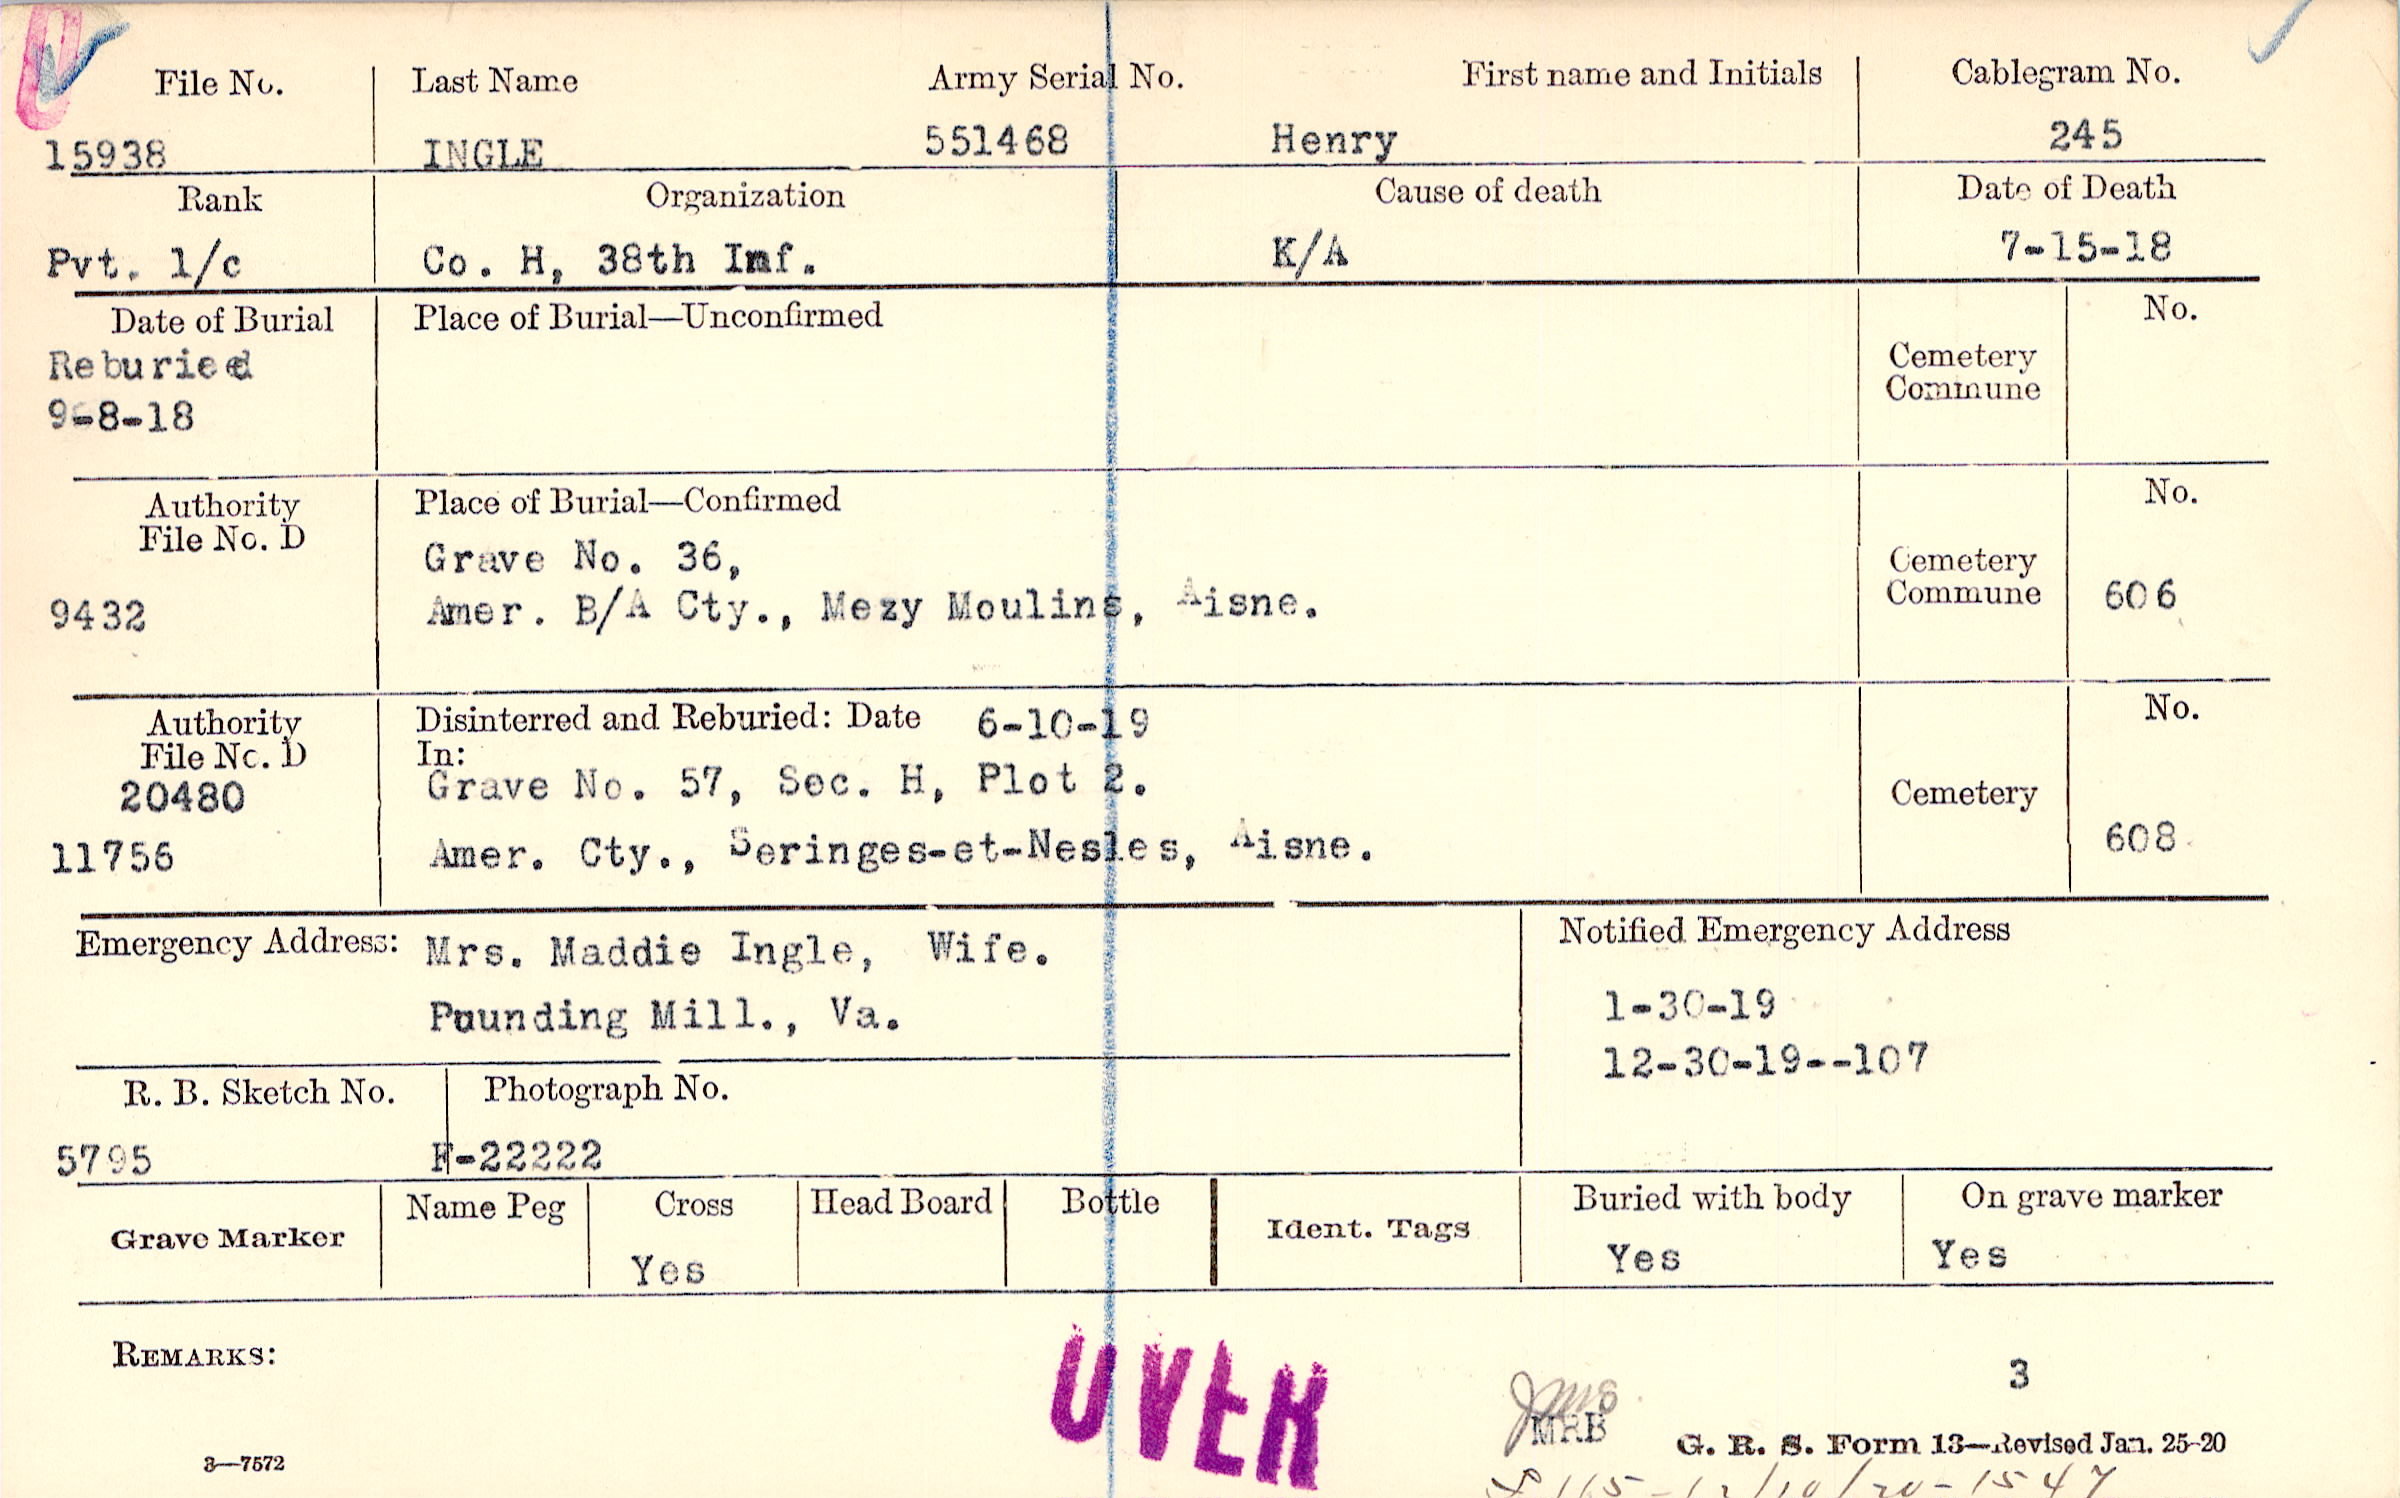 File No. Last Name Army Serial No. First name and Initials Cablegram No.
15938 INGLE 551468 Henry 245
Rank Organization Cause of death Date of Death
Pvt. 1/c Co. H, 38th Inf. K/A 7-15-18
Date of Burial Place of Burial—Unconfirmed No.
Reburied
9-8-18
Cemetery
Commune
Authority Place of Burial—Confirmed No.
File No. D
Grave No. 36,
9432 Amer. B/A Cty., Mezy Moulins, Aisne.
Cemetery
Commune 606
Authority Disinterred and Reburied: Date 6-10-19 No.
File No. D In:
20480 Grave No. 57, Sec. H, Plot 2. Cemetery
11756 Amer. Cty., Seringes-et-Nesles, Aisne. 608
Emergency Address: Mrs. Maddie Ingle, Wife. Notified Emergency Address
Pounding Mill., Va. 1-30-19
12-30-19--107
R. B. Sketch No. Photograph No.
5795 F-22222
Grave Marker Name Peg Cross Head Board Bottle Ident. Tags Buried with body On grave marker
Yes Yes Yes
REMARKS:
OVER
3
MRB
G. R. S. Form 13—Revised Jan. 25-20
3—7572